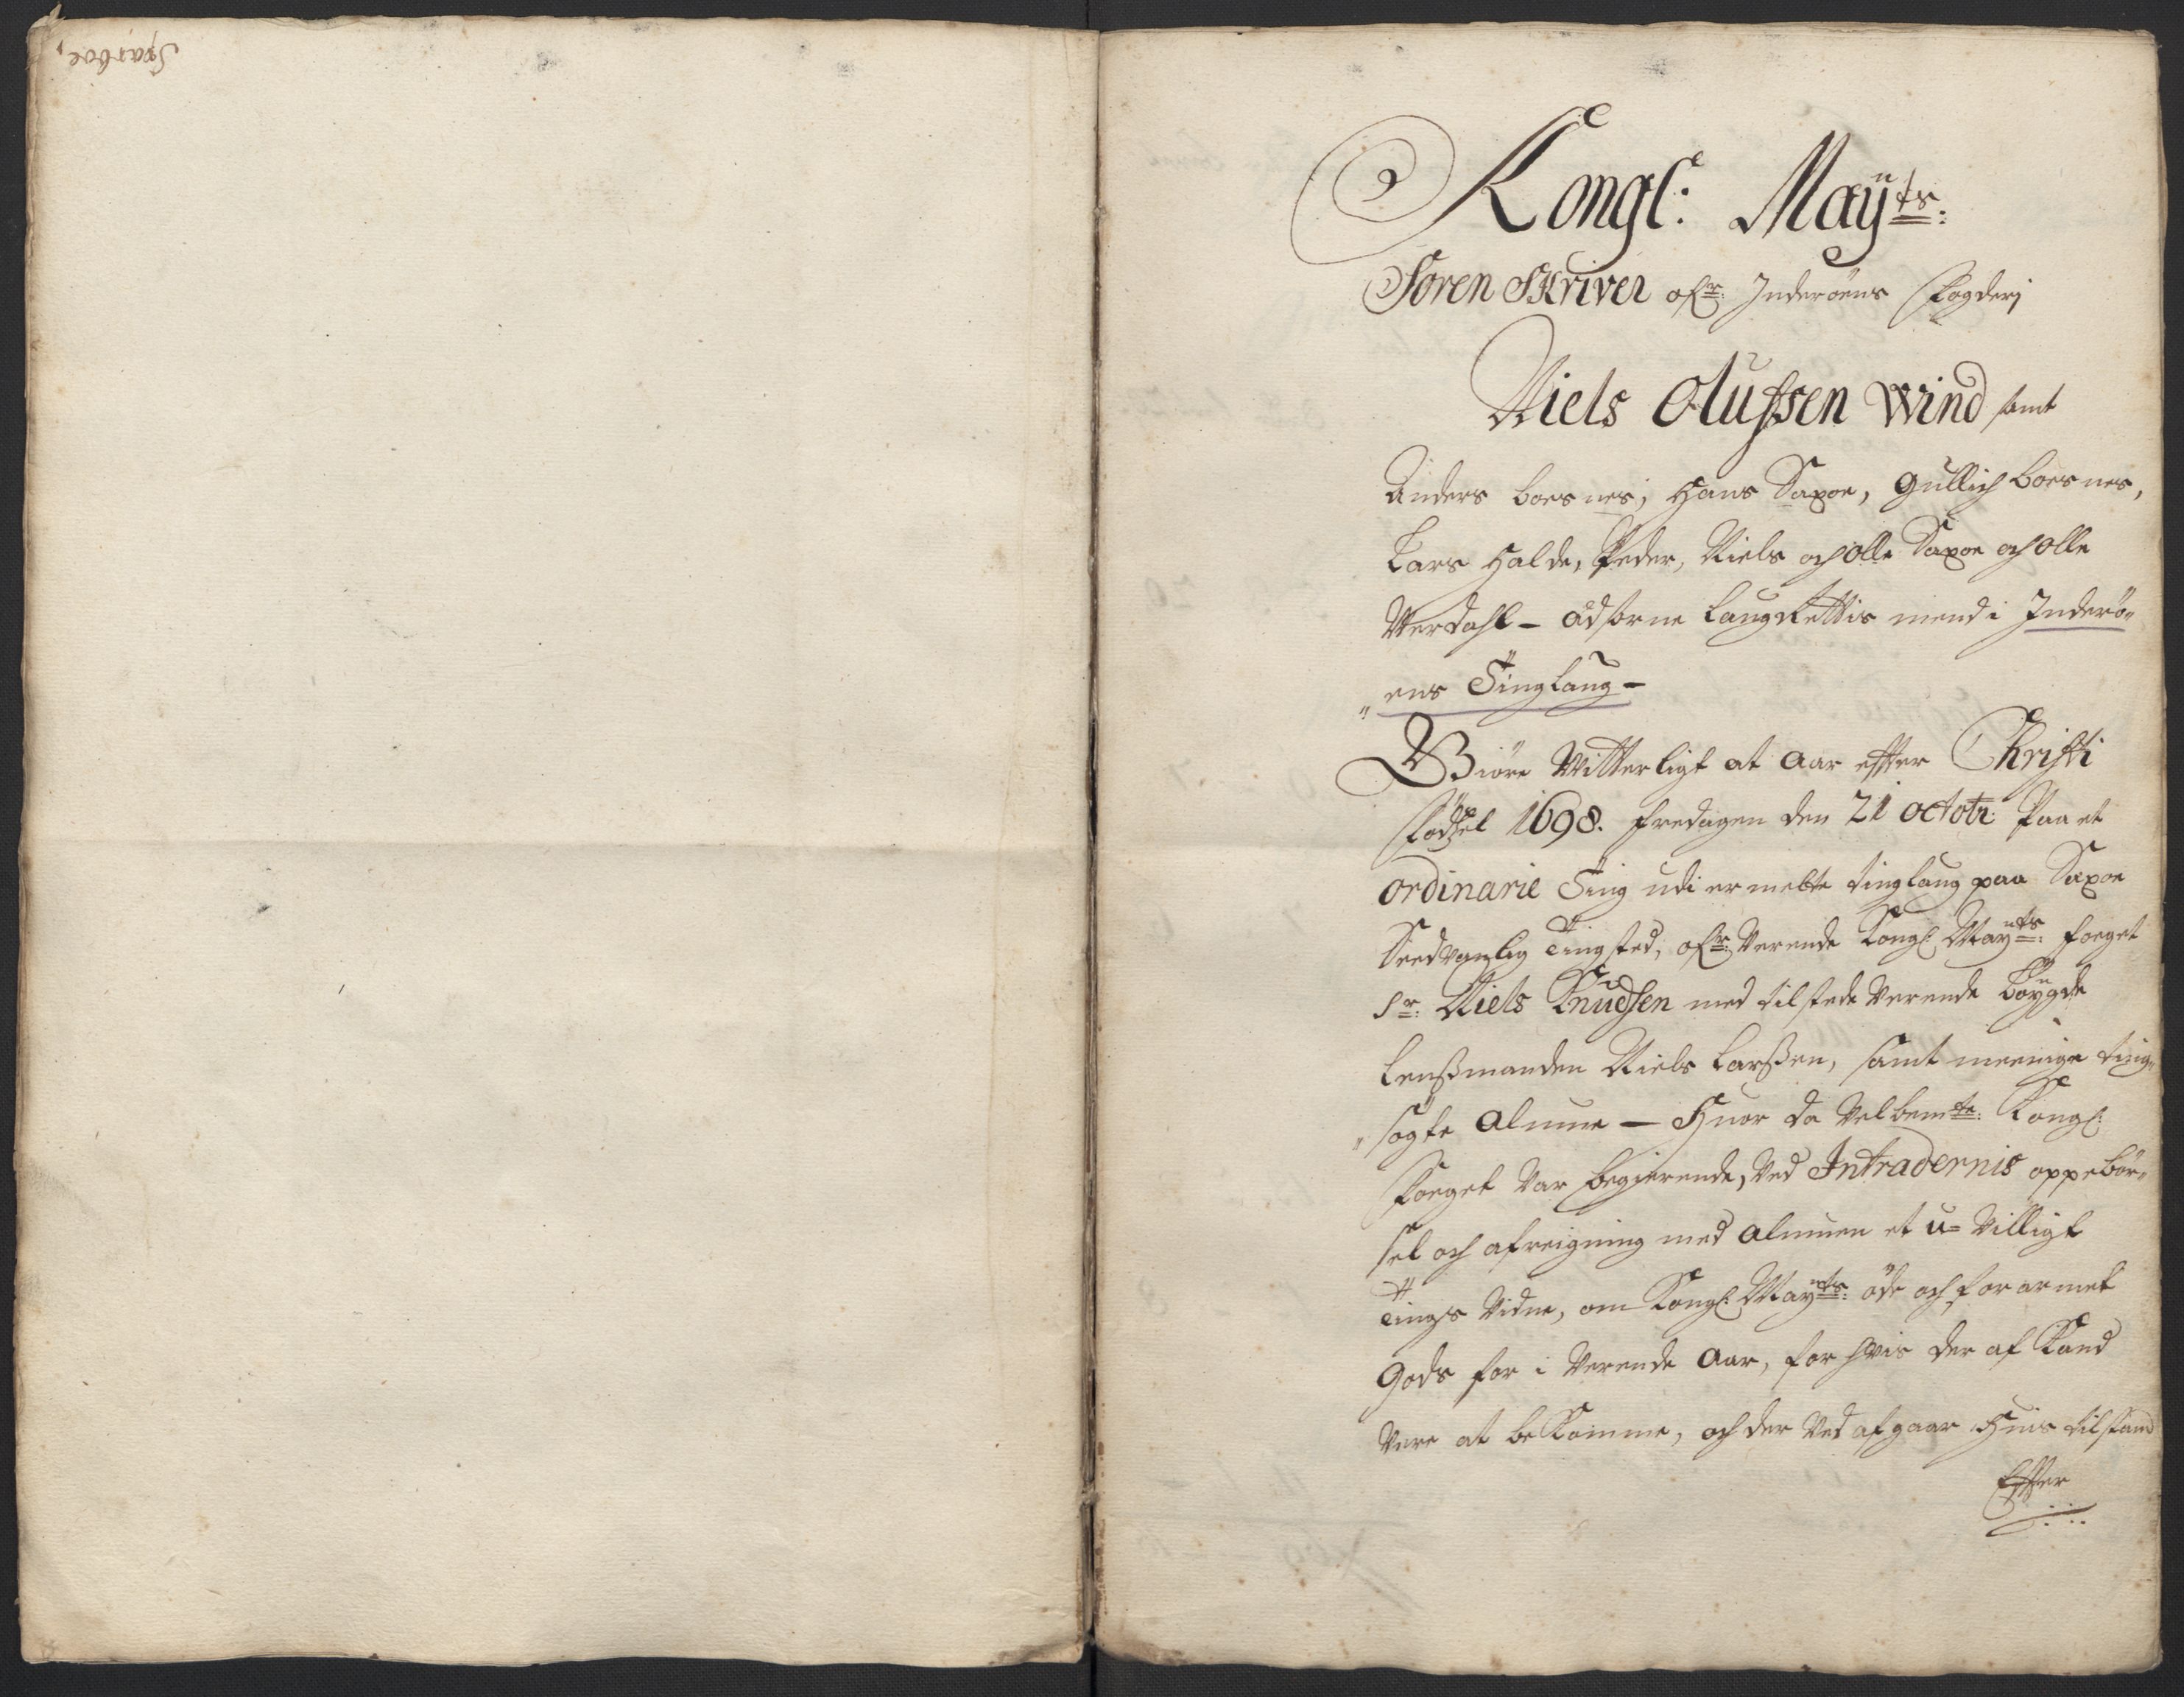 Sparboe,
Kongl: Mayts:
Soren Skriver ofr: Inderøens Fogderj
Niels Olufsen Wind samt
Anders boesnes, Hans Saxoe, Gullich boesnes,
Lars Halde, Peder, Niels och Olle Saxoe och Olle
Werdahl - Edsorne Laugrettis mend i Inderø„
„ens Tinglaug -
Giøre Witterligt at Aar effter Christi
Fødzel 1698. Fredagen den 21 octobr: Paa et
ordinarie Ting udi ermelte tinglaug paa Saxoe
Sædvanlig Tingsted, ofr: Verende Kongl: Mayts: foeget
Sr: Niels Knudsen med tilstede Verende bøygde
Lensßmanden Niels Larßen, samt meenige ting„
„søgte Almue - Huor da Velbemte: Kongl:
Foeget Var begierende, Ved Intradernis oppebør„
sel och afreigning med Almuen et u-Villigt
Tings Vidne, om Kongl: Mayts: øde och forarmet
Gods for i Verende Aar, for hvis der af Kand
Vere at beKomme, och der Ved afgaar Huis tilstand
Effter